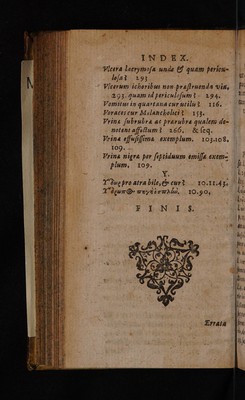 INDEX.
Vlcera lacrymosa unde & quam pericu-
losa? 293
Vlcerum ichoribus non præstruenda via,
293. quam id periculosum? 294.
Vomitus in quartana cur utilis? 116.
Voraces cur Melancholici? 155.
Vrina subrubra ac prærubra qualem de-
notent affectum? 266. & seq.
Vrina effusissima exemplum. 103.108.
109.
Vrina nigra per septiduum emissæ exem-
plum. 109.
Y.
pro atra bile, & cur? 10.11.43.
10.90.
FINIS.
Errata